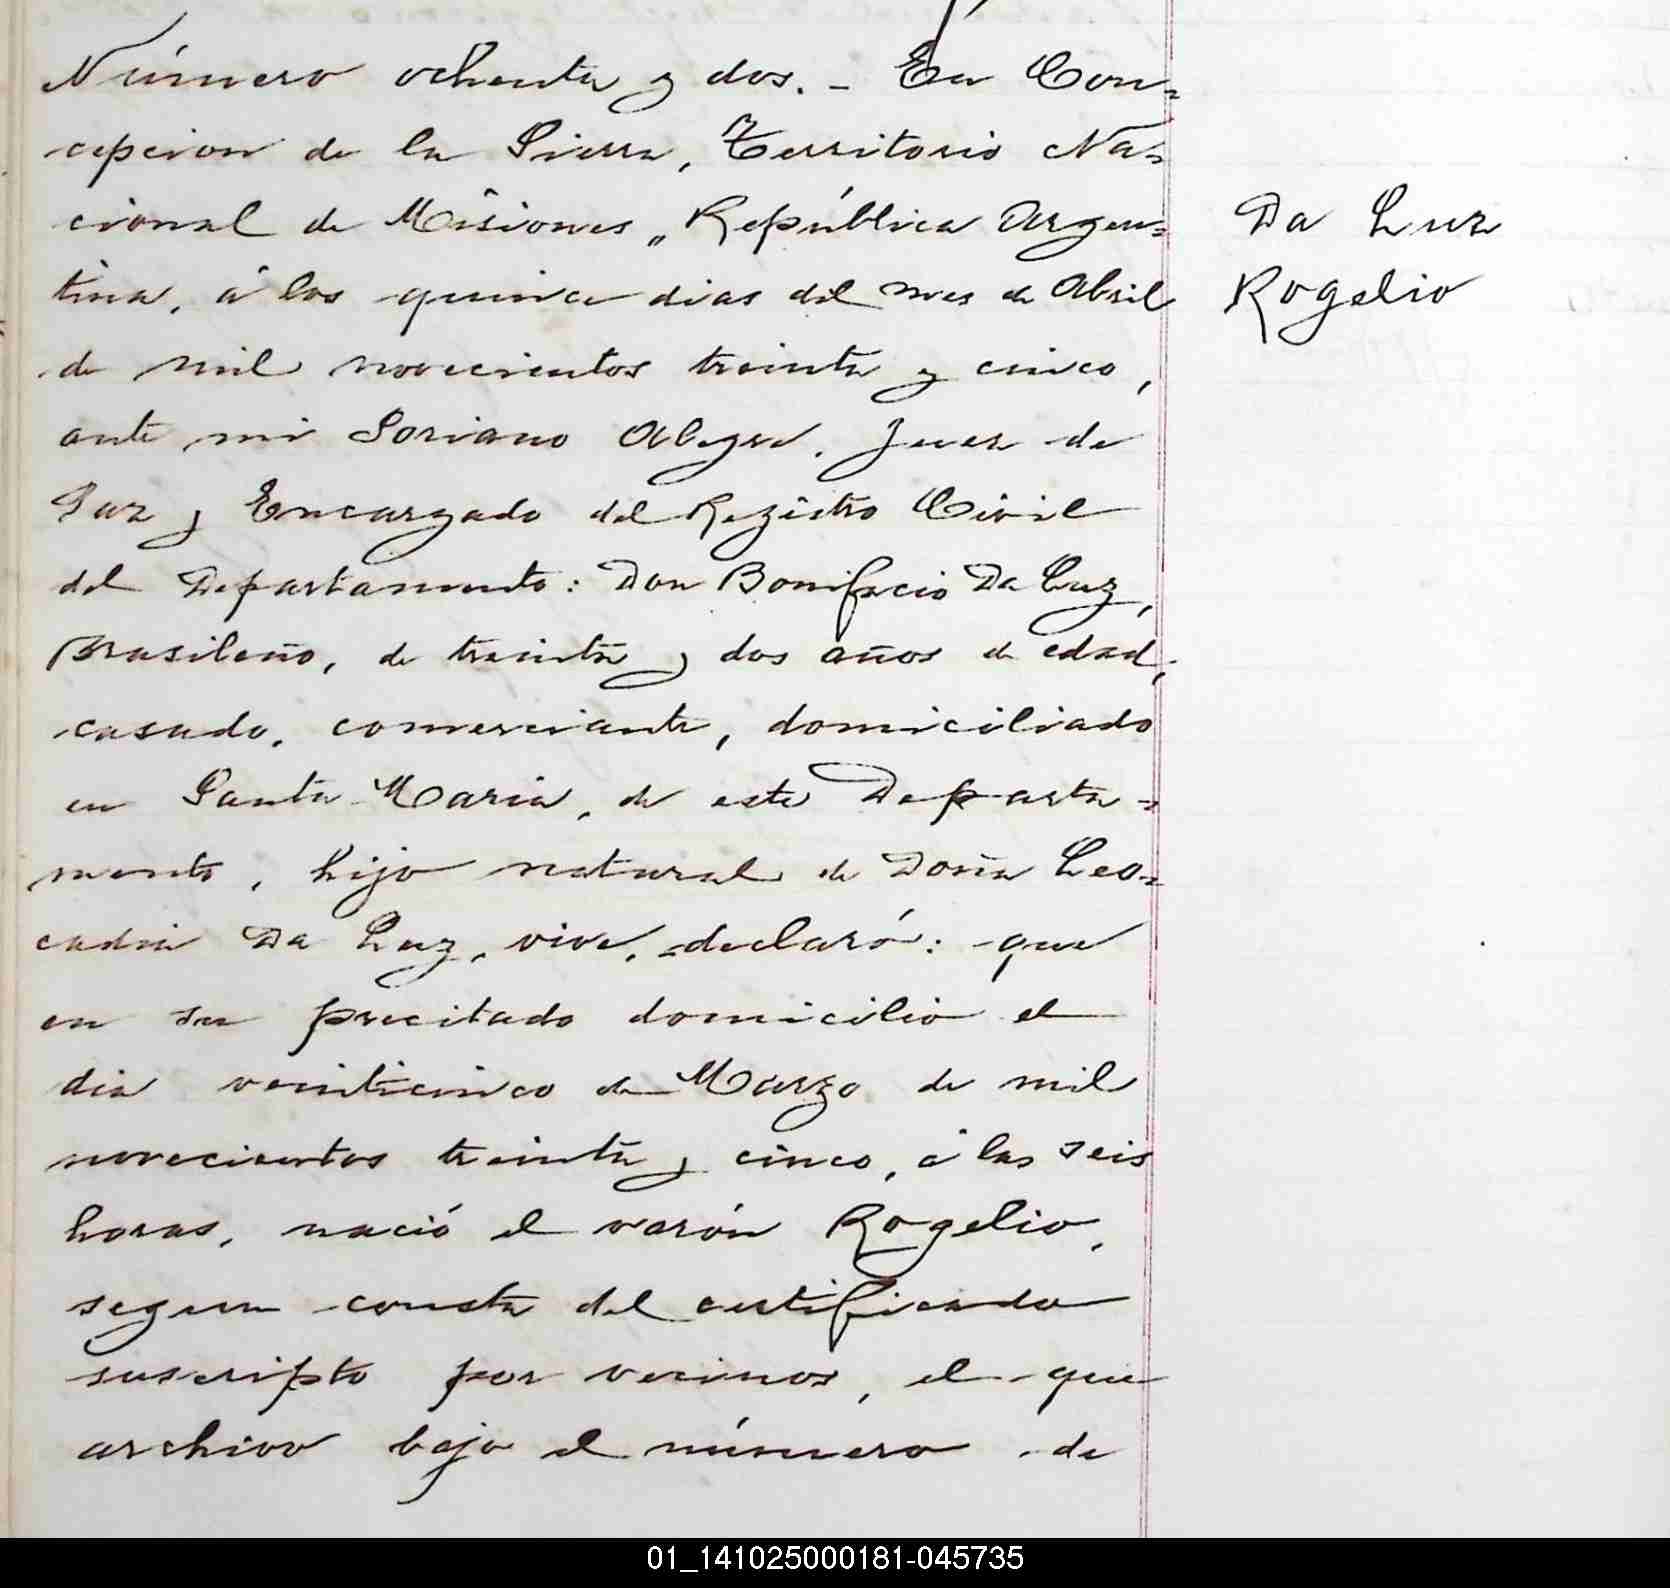 Número ochenta y dos. - En Con=
cepcion de la Sierra, Territorio Na=
cional de Misiones, República Argen=
tina, á los quince dias del mes de Abril
de mil novecientos treinta y cinco,
ante mi Soriano Alegre, Juez de
Paz y Encargado del Registro Civil
del Departamento: Don Bonifacio Da Luz,
Brasileño, de treinta y dos años de edad,
casado, comerciante, domiciliado
en Santa Maria, de este Departa=
mento, hijo natural de Doña Leo=
cadia Da Luz, vive, declaró: que
en su precitado domicilio el
dia veinticinco de Marzo de mil
novecientos treinta y cinco, á las seis
horas, nació el varón Rogelio,
segun consta del certificado
suscripto por vecinos, el que
archivo bajo el número de
Da Luz
Rogelio
01_141025000181-045735